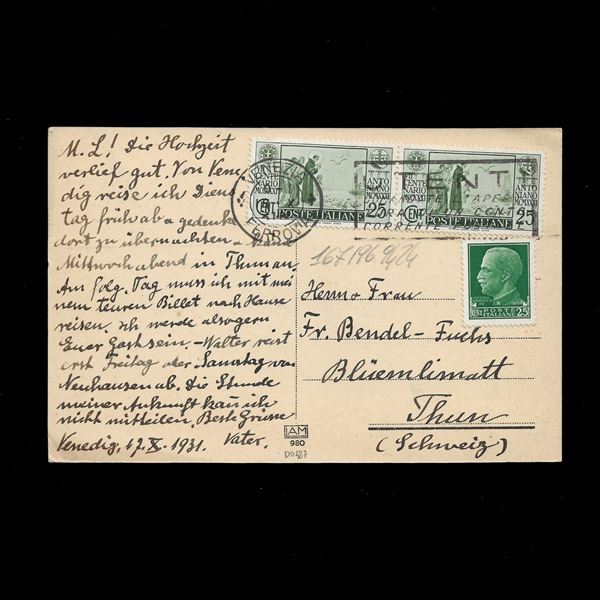 M. L! Die Hochzeit
verlief gut. Von Vene
dig reise ich Diens
tag früh ab & gedenke
dort zu übernachten
Mittwochabend in Thun an.
Am folg. Tag muss ich mit mei
nem teuren Billet nach Hause
reisen. Ich werde also gern
Euer Gast sein. – Walter reist
erst Freitag oder Samstag von
Neuhausen ab. Die Stunde
meiner Ankunft kann ich
nicht mitteilen. Beste Grüsse
Venedig, 17.X.1931. Vater.
VENEZIA
FERROVIA
POSTE ITALIANE
25
CENT
POSTE ITALIANE
25
CENT
CORRENTE
POSTE
ITALIANE
25
167196
Herrn & Frau
Fr. Bendel-Fuchs
Blüemlimatt
Thun
(Schweiz)
IAM
980
D0487